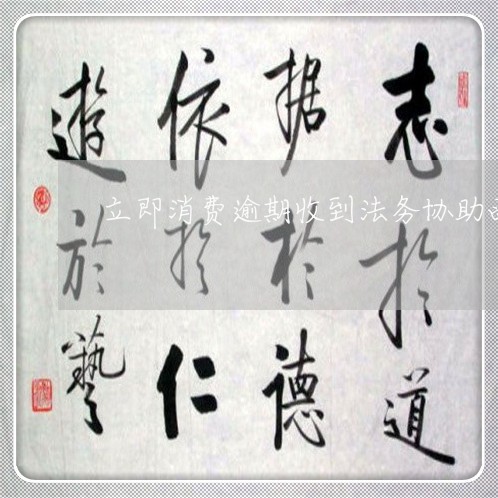 志於道
据於德
依於仁
遊於藝
立即消费逾期收到法务协助